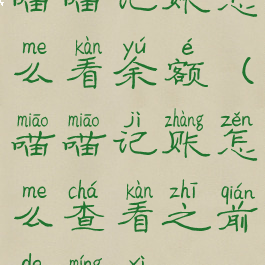 喵喵记账怎
me kàn yú é
么看余额（
miāo miāo jì zhàng zěn
喵喵记账怎
me chá kàn zhī qián
么查看之前
de míng xì